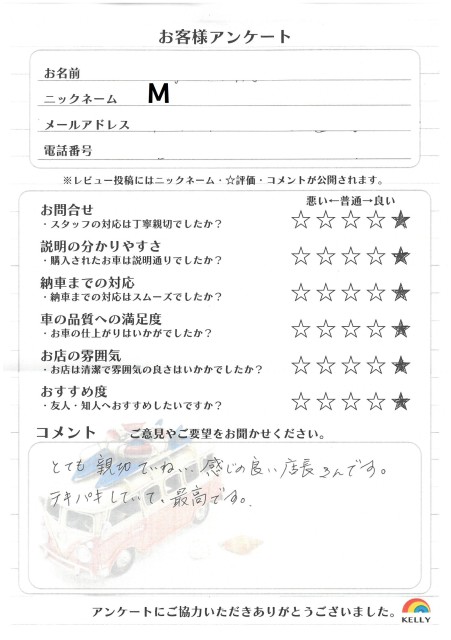 お客様アンケート
お名前
ニックネーム M
メールアドレス
電話番号
※レビュー投稿にはニックネーム・☆評価・コメントが公開されます。
悪い←普通→良い
お問合せ
・スタッフの対応は丁寧親切でしたか? ☆☆☆☆★
説明の分かりやすさ
・購入されたお車は説明通りでしたか? ☆☆☆☆★
納車までの対応
・納車までの対応はスムーズでしたか? ☆☆☆☆★
車の品質への満足度
・お車の仕上がりはいかがでしたか? ☆☆☆☆★
お店の雰囲気
・お店は清潔で雰囲気の良さはいかかでしたか? ☆☆☆☆★
おすすめ度
・友人・知人へおすすめしたいですか? ☆☆☆☆★
コメント ご意見やご要望をお聞かせください。
とても親切ていねい、感じの良い店長さんです。
テキパキしていて、最高です。
アンケートにご協力いただきありがとうございました。
KELLY